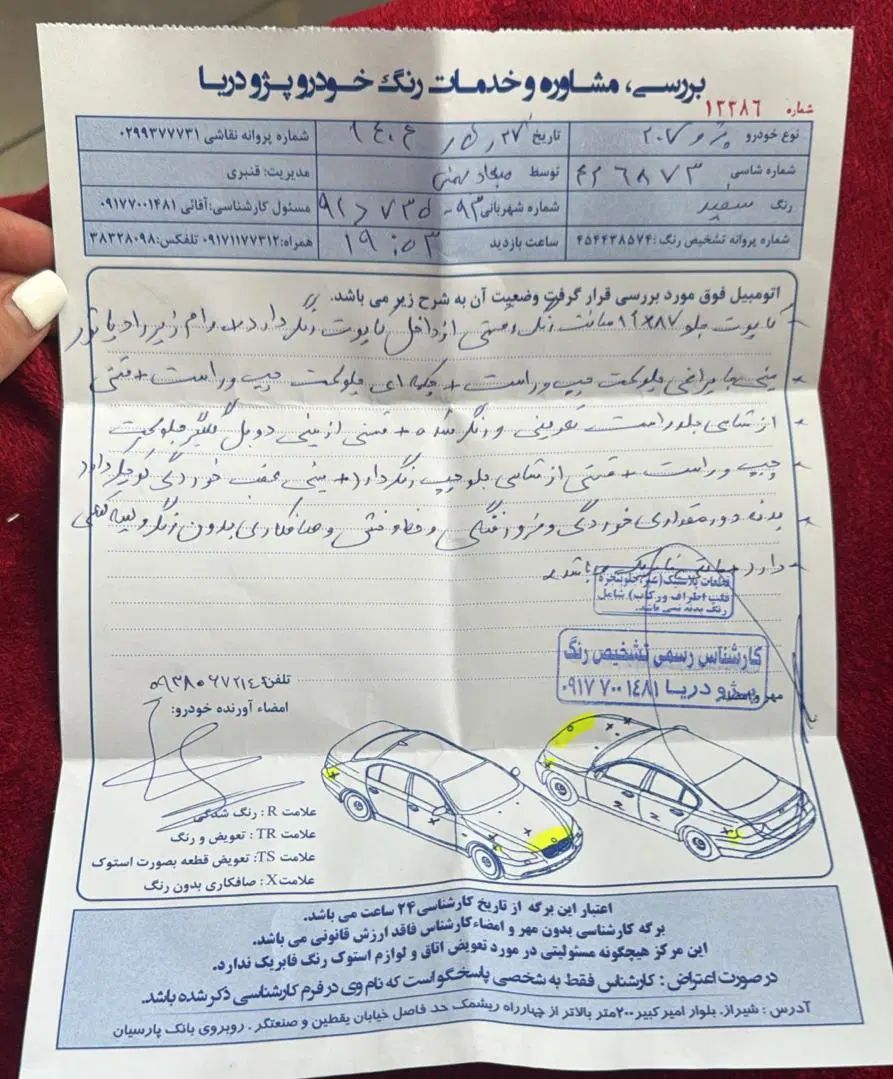 بررسی، مشاوره و خدمات رنگ خودرو پژو دریا
شماره ۱۲۲۸۶
نوع خودرو پژو ۲۰۷ تاریخ ۲۷ شماره پروانه نقاشی ۰۲۹۹۳۷۷۷۳۱
شماره شاسی ۴۲۶۸۷۳ توسط مدیریت: قنبری
رنگ سفید شماره شهربانی ۹۳ - مسئول کارشناسی: آقائی ۰۹۱۷۷۰۰۱۴۸۱
شماره پروانه تشخیص رنگ: ۴۵۴۴۳۸۵۷۴ ساعت بازدید ۱۹:۰۳ همراه: ۰۹۱۷۱۱۷۷۳۱۲ تلفکس: ۳۸۳۲۸۰۹۸
اتومبیل فوق مورد بررسی قرار گرفت وضعیت آن به شرح زیر می باشد.
کاپوت جلو قسمتی از داخل کاپوت رنگ دارد + رام زیر رادیاتور
سینی چراغی جلو چپ و راست + چپ و راست + قسمتی
از شاسی جلو راست تعویض و رنگ شده + قسمتی از سینی دوبل گلگیر جلو
چپ و راست + قسمتی از شاسی جلو چپ رنگ دارد + سینی عقب خوردگی کوچک دارد
بدنه دور مقداری خوردگی و فرورفتگی و خط و خش و صافکاری بدون رنگ و
دارد می باشد
قطعات پلاستیک (سپر، جلوپنجره
قاب اطراف و رکاب) شامل
رنگ بدنه نمی باشد.
کارشناس رسمی تشخیص رنگ
پژو دریا ۰۹۱۷۷۰۰۱۴۸۱
مهر و امضاء
تلفن:
امضاء آورنده خودرو:
علامت R : رنگ شدگی
علامت TR : تعویض و رنگ
علامت TS: تعویض قطعه بصورت استوک
علامت X : صافکاری بدون رنگ
اعتبار این برگه از تاریخ کارشناسی ۲۴ ساعت می باشد.
برگه کارشناسی بدون مهر و امضاء کارشناس فاقد ارزش قانونی می باشد.
این مرکز هیچگونه مسئولیتی در مورد تعویض اتاق و لوازم استوک رنگ فابریک ندارد.
در صورت اعتراض: کارشناس فقط به شخصی پاسخگو است که نام وی در فرم کارشناسی ذکر شده باشد.
آدرس: شیراز. بلوار امیر کبیر ۲۰۰ متر بالاتر از چهارراه ریشمک حد فاصل خیابان یقطین و صنعتگر. روبروی بانک پارسیان